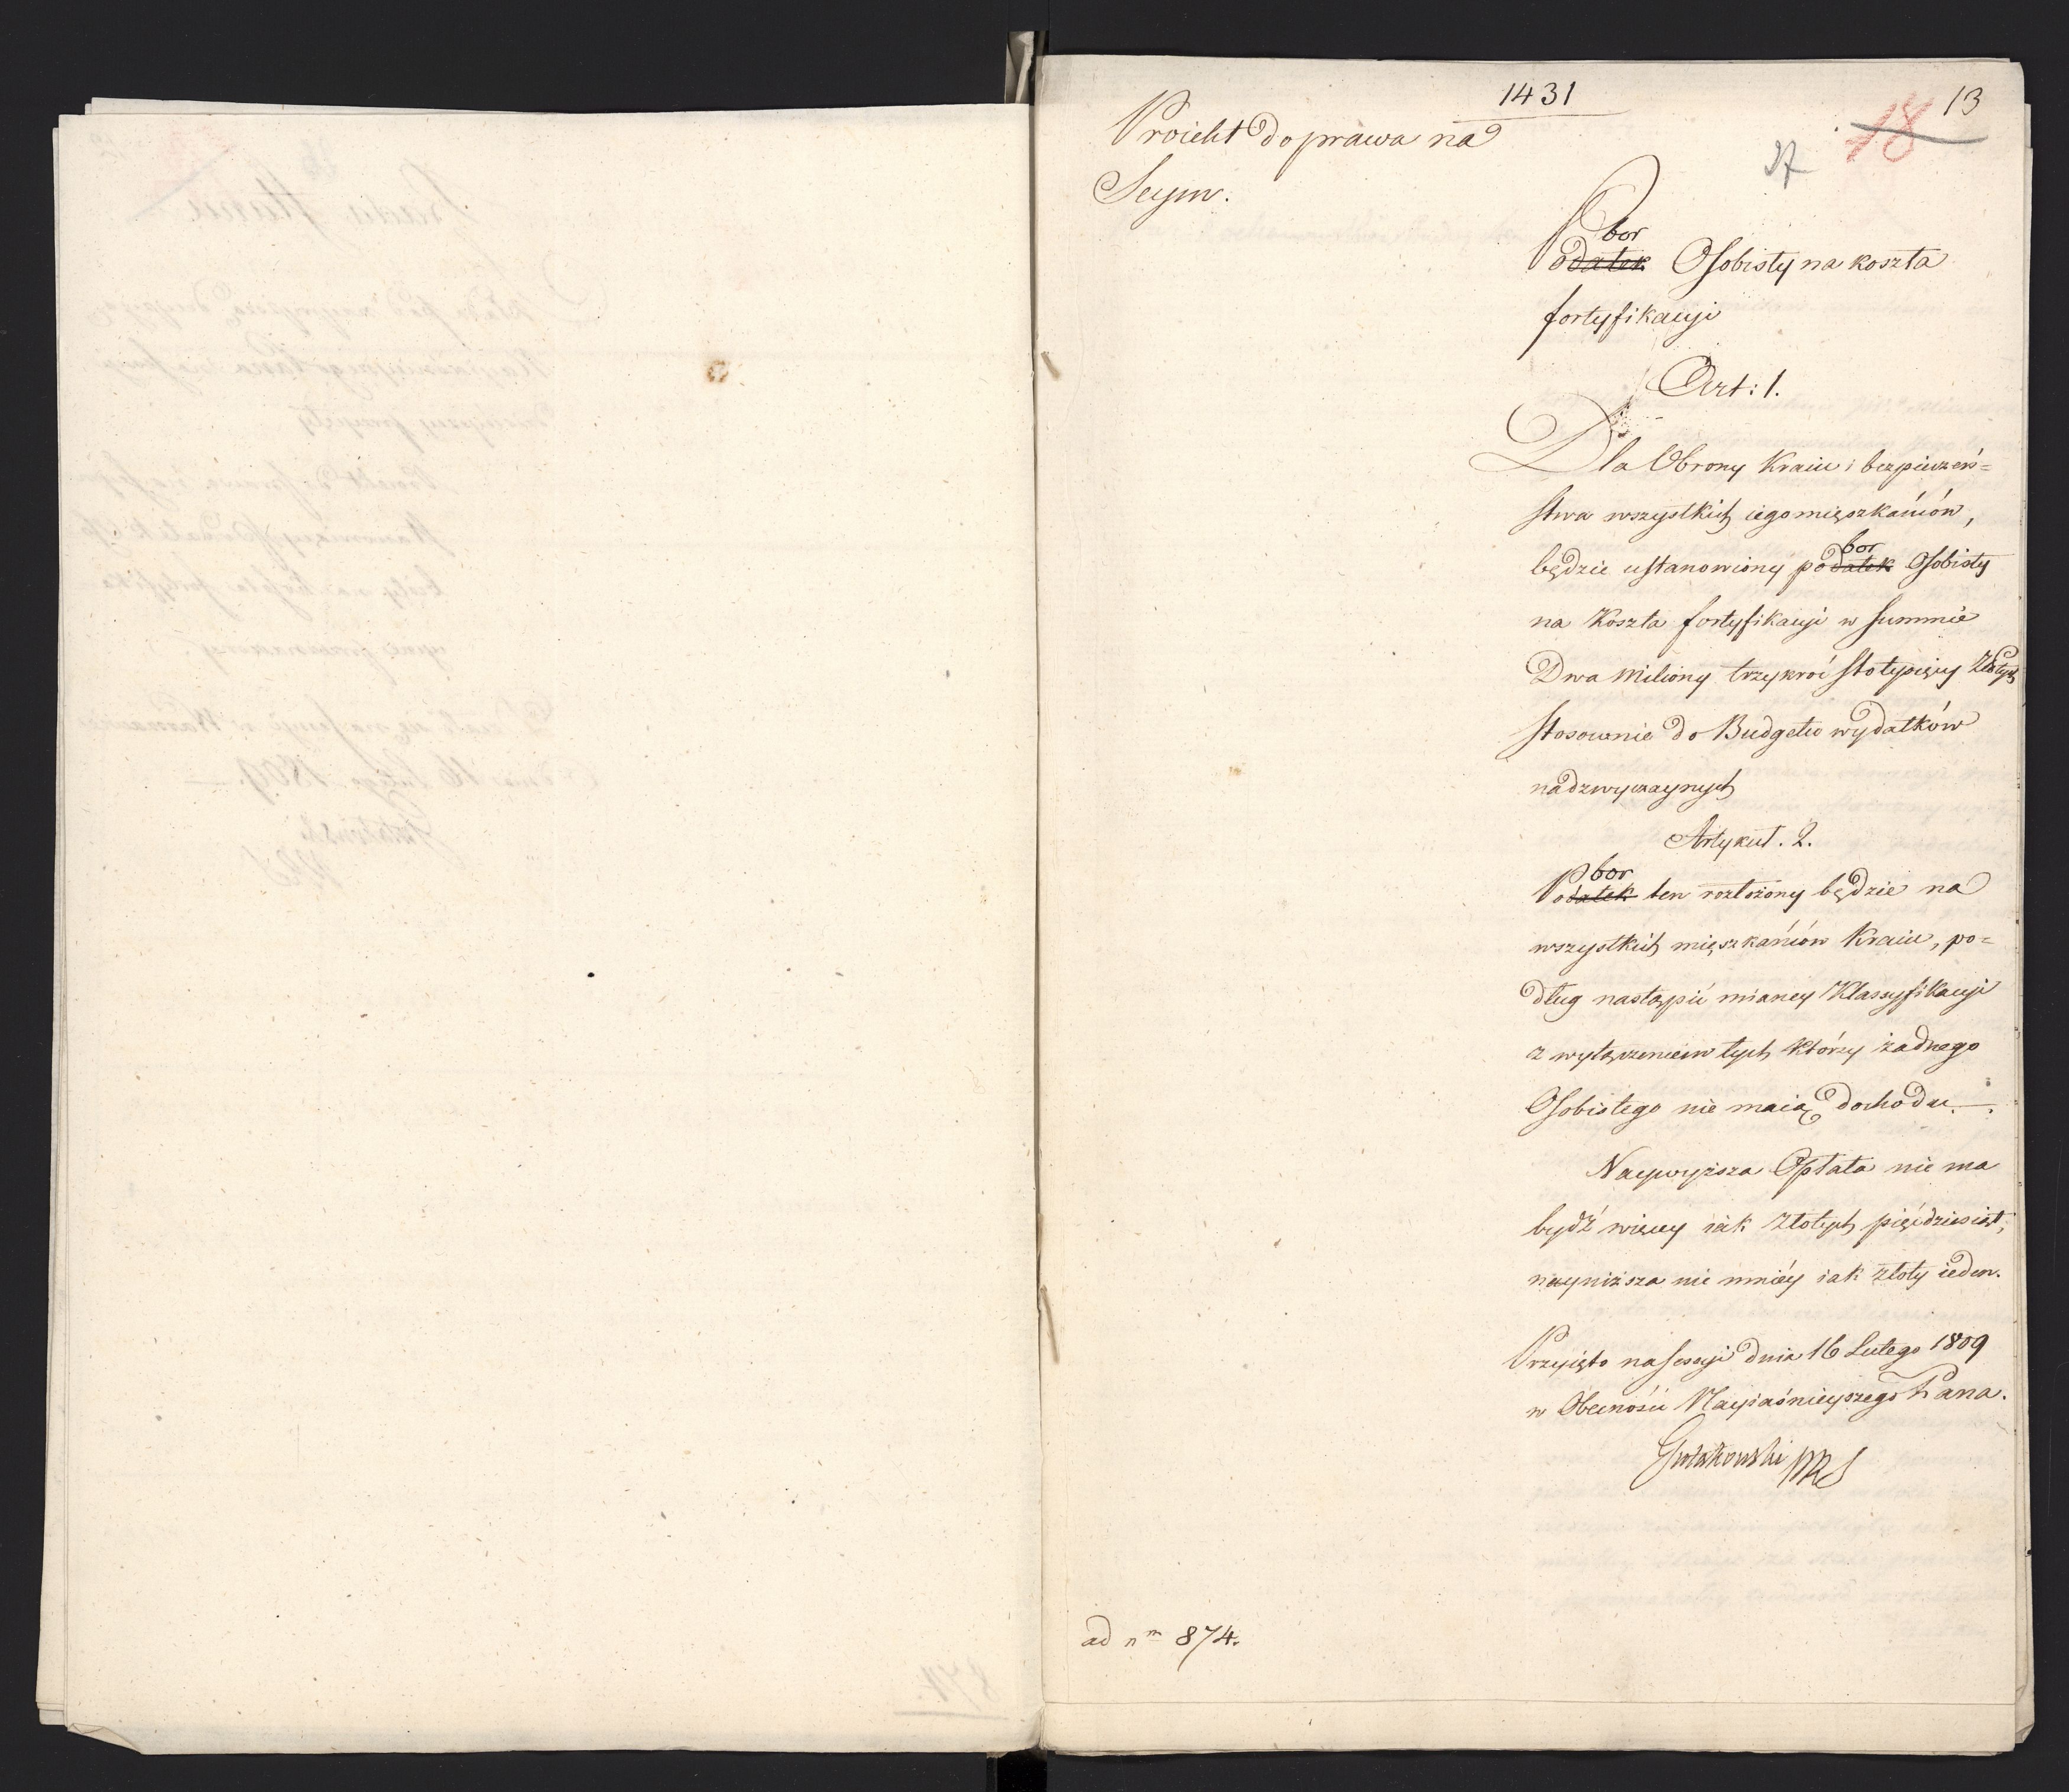 1431
13
18
27
Proiekt do prawa na
Seym.
bor
Podatek Osobisty na koszta
fortyfikacyi
Art: 1.
Dla Obrony Kraiu i bezpieczeń=
stwa wszystkich iego mięszkańców,
bor
będzie ustanowiony podatek Osobisty
na Koszta fortyfikacyi w Summie
Dwa Miliony trzykroć Stotysięcy Złotych
Stosownie do Budgetu wydatków
nadzwyczaynych
Artykuł. 2.
bor
Podatek ten rozłożony będzie na
wszystkich mięszkańców Kraiu, po=
dług nastąpić mianey Klassyfikacyi
z wyłączeniem tych którzy żadnego
Osobistego nie maią dochodu.
Naywyższa Opłata nie ma
bydź więcey iak Złotych pięćdziesiąt,
nayniższa nie mniéy iak złoty ieden.
Przyięto na Sessyi dnia 16 Lutego 1809
w Obecności Nayiaśnieyszego Pana.
ad nm 874.